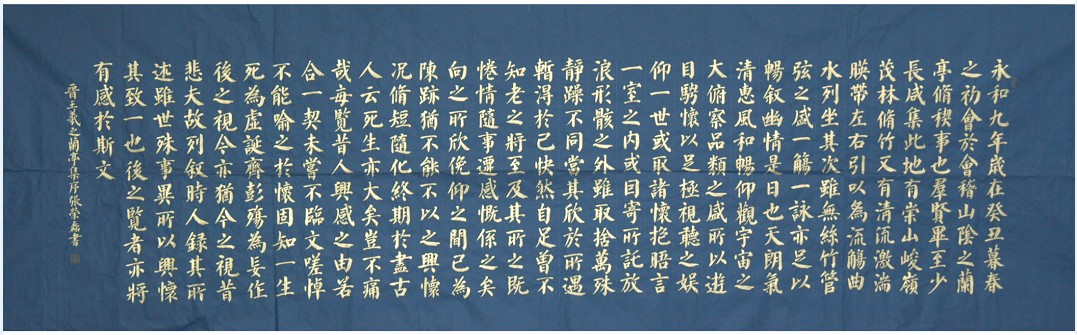 永和九年歲在癸丑暮春
之初會於會稽山陰之蘭
亭脩稧事也羣賢畢至少
長咸集此地有崇山峻嶺
茂林脩竹又有清流激湍
暎帶左右引以為流觴曲
水列坐其次雖無絲竹管
弦之盛一觴一詠亦足以
暢敘幽情是日也天朗氣
清惠風和暢仰觀宇宙之
大俯察品類之盛所以遊
目騁懷以足極視聽之娛
仰一世或取諸懷抱晤言
一室之內或因寄所託放
浪形骸之外雖取捨萬殊
靜躁不同當其欣於所遇
暫得於己快然自足曾不
知老之將至及其所之既
惓情隨事遷感慨係之矣
向之所欣俛仰之間已為
陳跡猶不能不以之興懷
況脩短隨化終期於盡古
人云死生亦大矣豈不痛
哉每覽昔人興感之由若
合一契未嘗不臨文嗟悼
不能喻之於懷固知一生
死為虛誕齊彭殤為妄作
後之視今亦猶今之視昔
悲夫故列敘時人錄其所
述雖世殊事異所以興懷
其致一也後之覽者亦將
有感於斯文
晉王羲之蘭亭集序張榮磊書